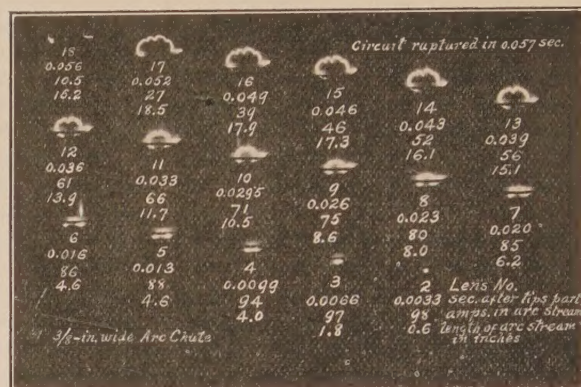 Circuit ruptured in 0.057 sec.
18
0.056
10.5
15.2
17
0.052
27
18.5
16
0.049
39
17.9
15
0.046
46
17.3
14
0.043
52
16.1
13
0.039
56
15.1
12
0.036
61
13.9
11
0.033
66
11.7
10
0.0295
71
10.5
9
0.026
75
8.6
8
0.023
80
8.0
7
0.020
85
6.2
6
0.016
86
4.6
5
0.013
88
4.6
4
0.0099
94
4.0
3
0.0066
97
1.8
2 Lens No.
0.0033 sec. after tips part
98 amps. in arc stream
0.6 length of arc stream
in inches
3/8-in. wide Arc Chute